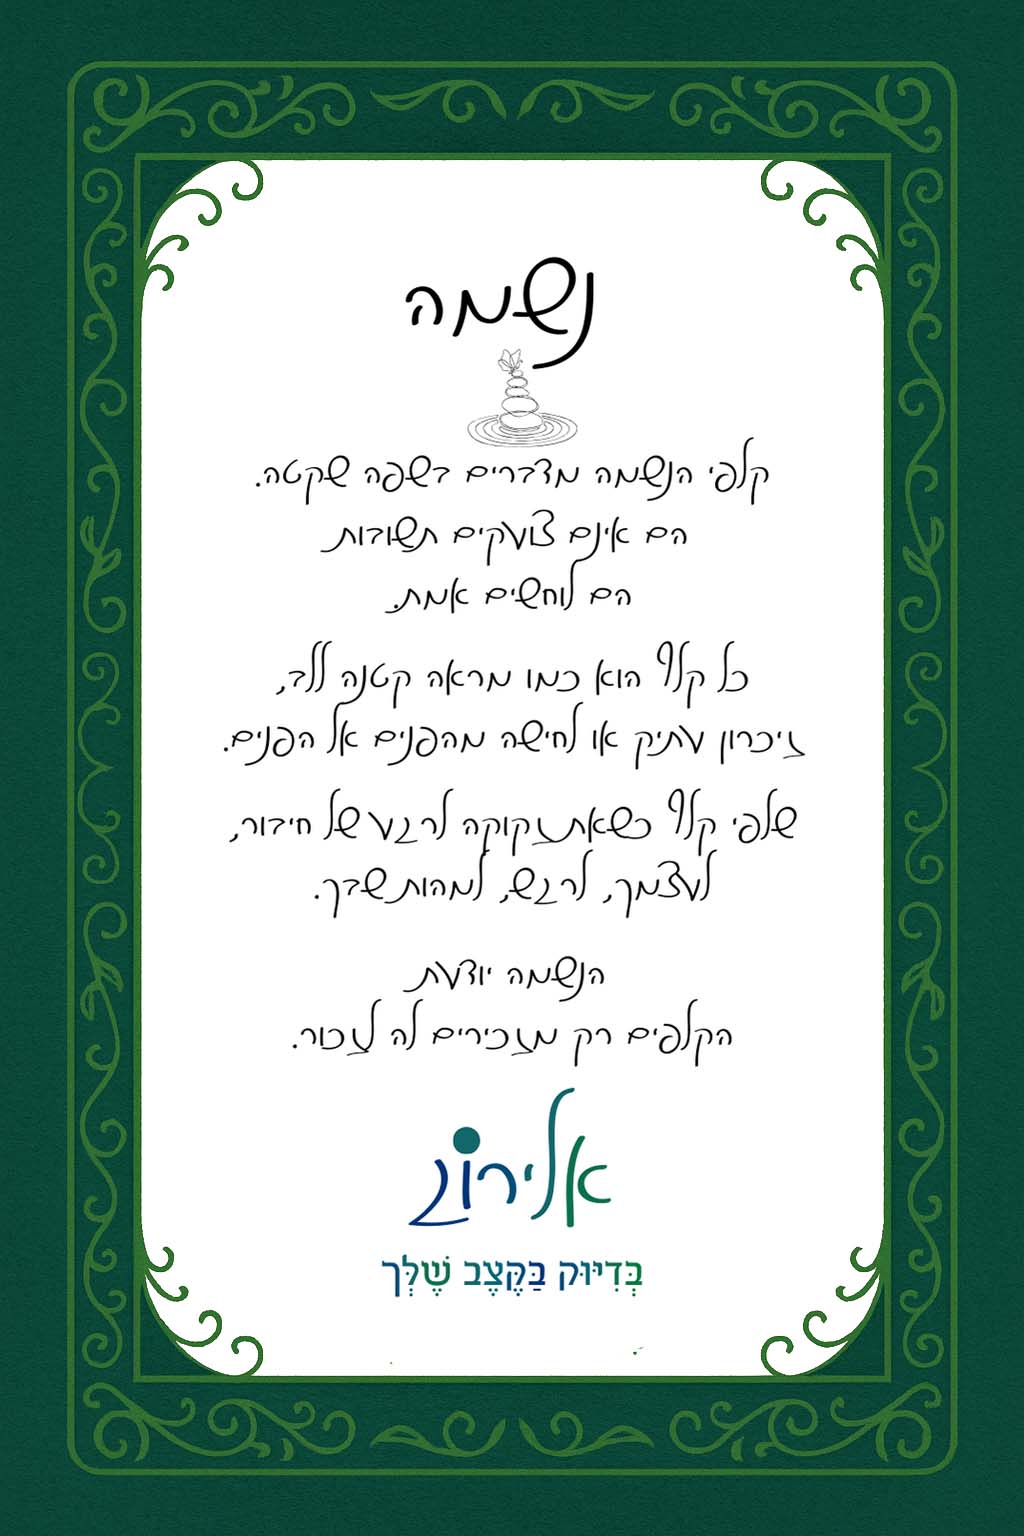 נשמה
קלפי הנשמה מדברים בשפה שקטה.
הם אינם צועקים תשובות
הם לוחשים אמת.
כל קלף הוא כמו מראה קטנה ללב,
זיכרון עתיק או לחישה מהפנים אל הפנים.
שלפי קלף כשאת זקוקה לרגע של חיבור,
לעצמך, לרגש, למהות שבך.
הנשמה יודעת
הקלפים רק מזכירים לה לזכור.
אלירוֹג
בְּדִיּוּק בַּקֶּצֶב שֶׁלְּךָ